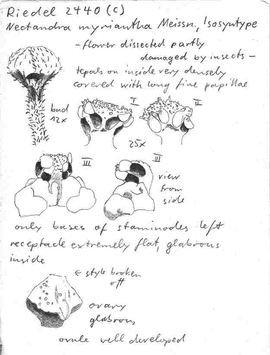 Riedel 2440 (C)
Nectandra myriantha Meissn., Isosyntype
- flower dissected partly
damaged by insects -
tepals on inside very densely
covered with long fine papillae
I
II
bud
12x
25x
III
III
view
from
side
only bases of staminodes left
receptacle extremely flat, glabrous
inside
← style broken
off
ovary
glabrous,
ovule well developed